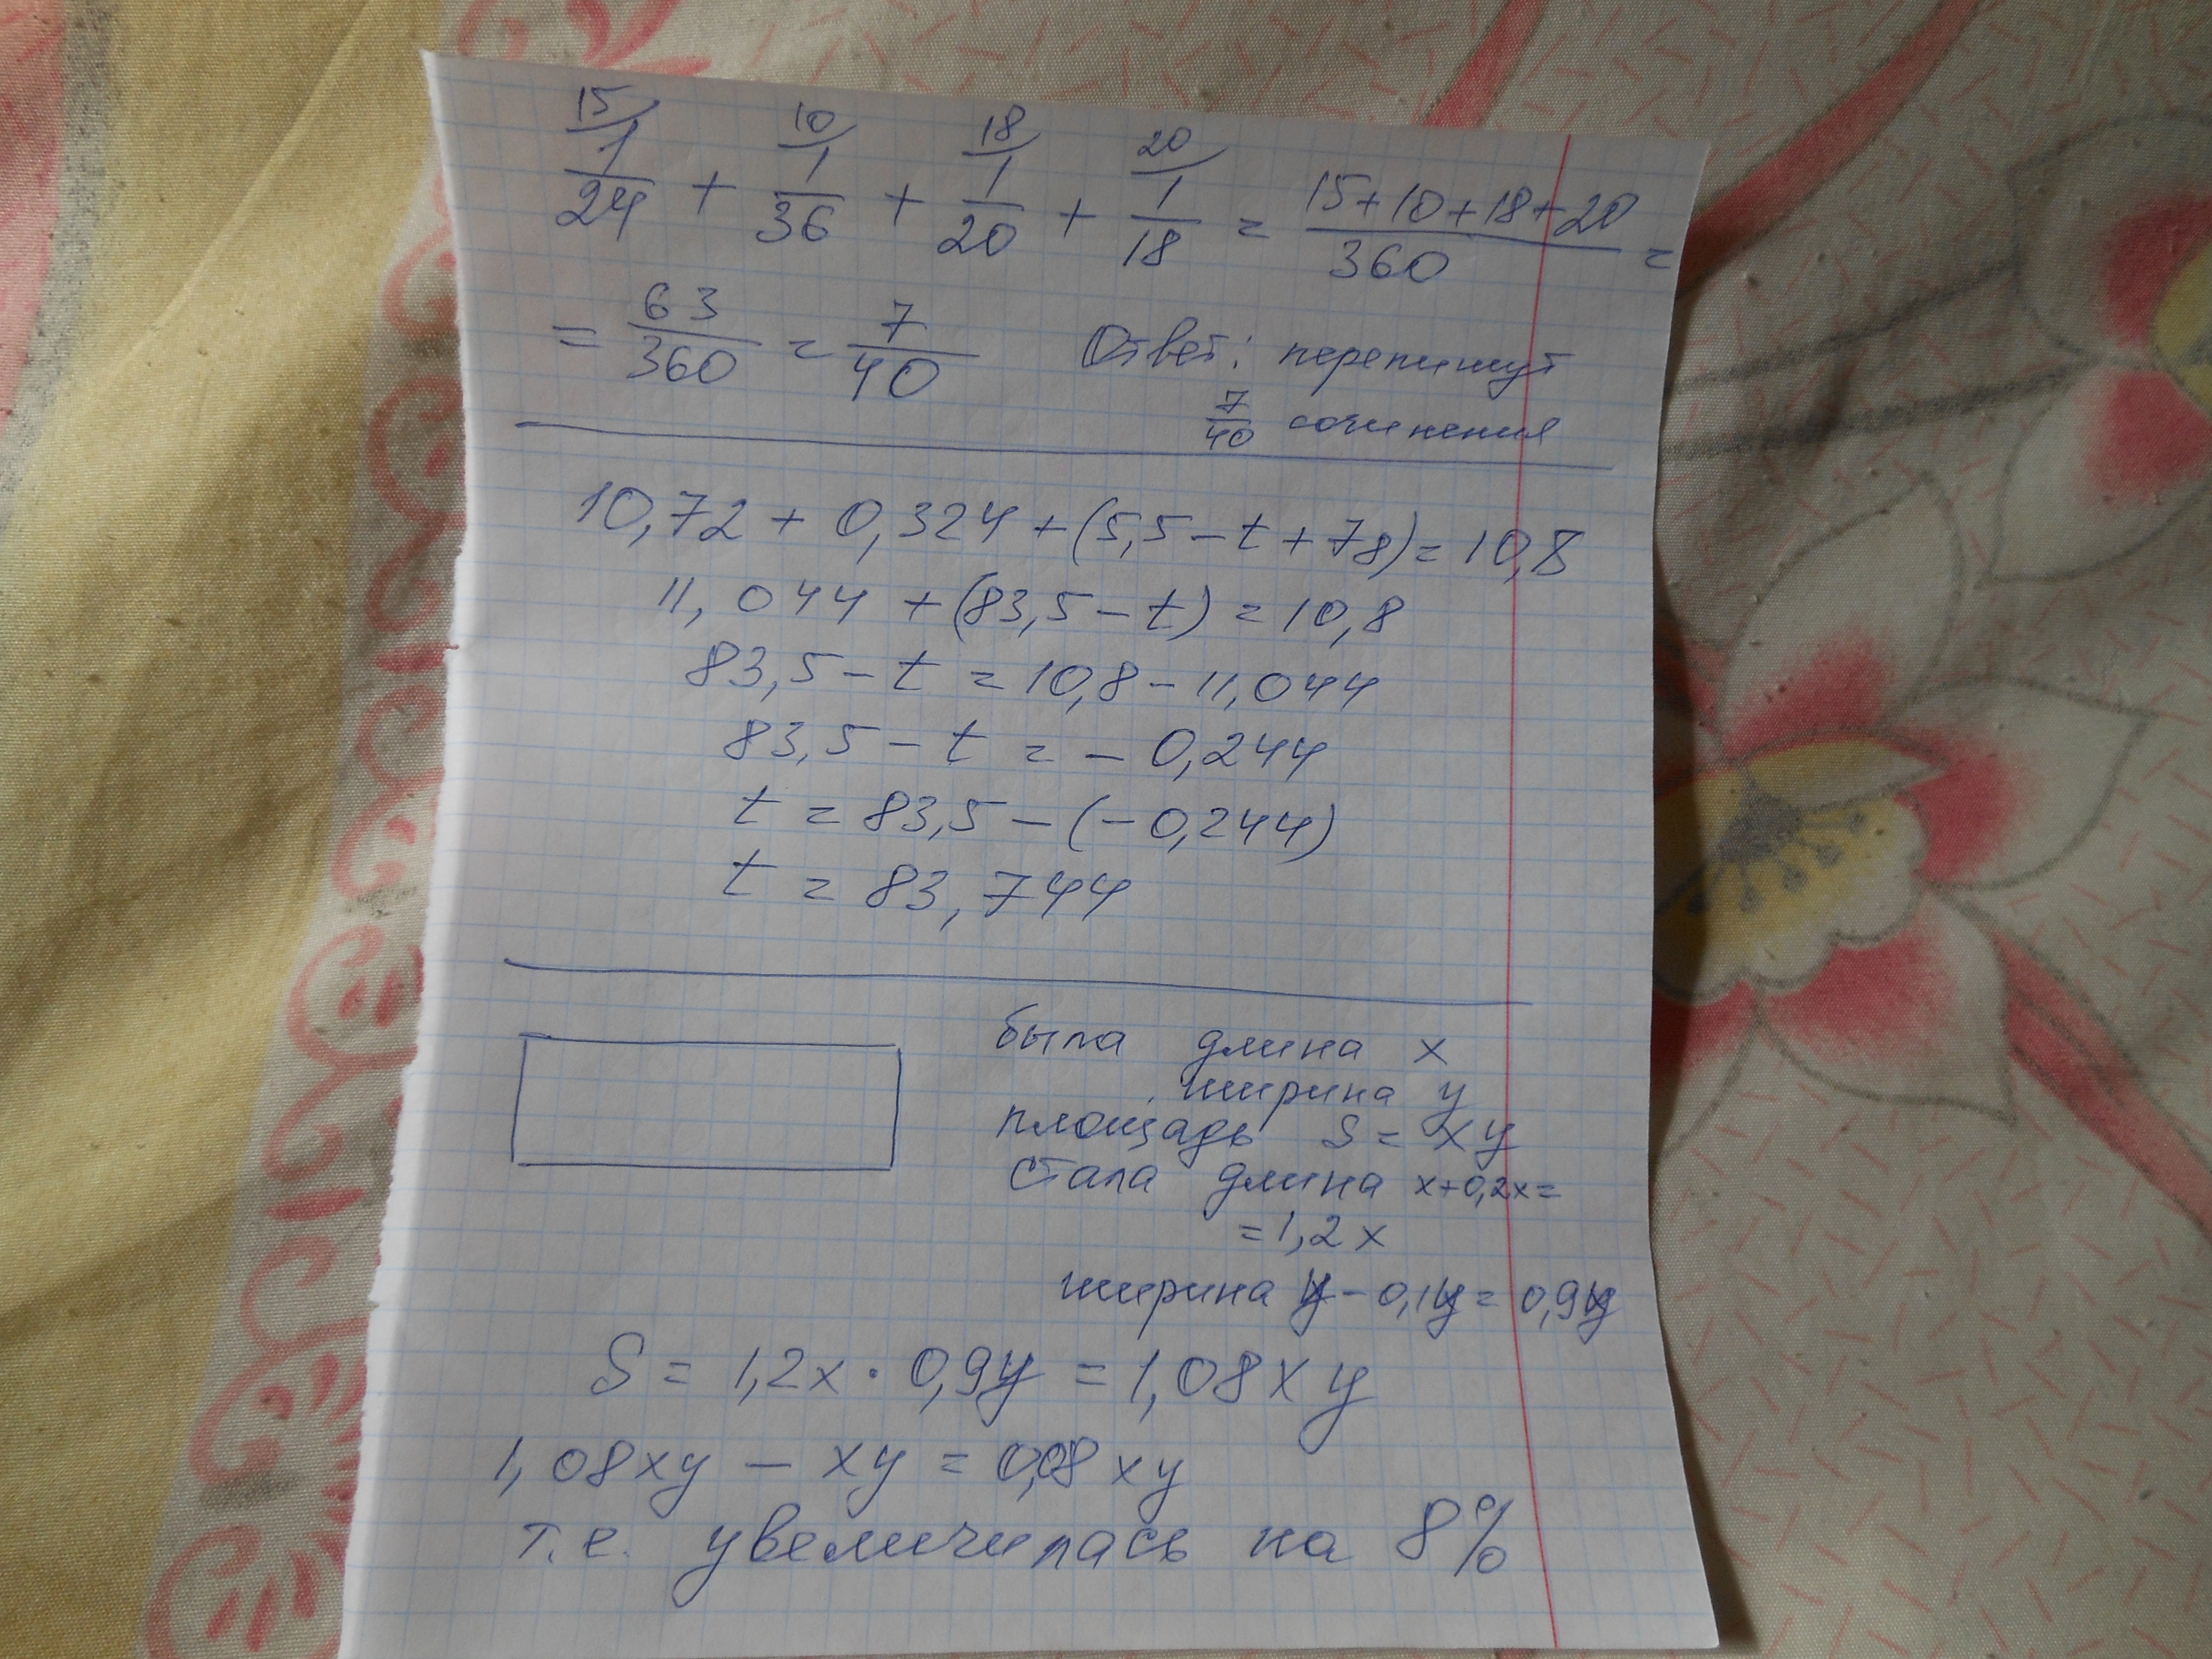 15/ 10/ 18/ 20/
1/24 + 1/36 + 1/20 + 1/18 = (15+10+18+20)/360 =
= 63/360 = 7/40 Ответ: перепишут
7/40 сочинения
10,72 + 0,324 + (5,5 - t + 78) = 10,8
11,044 + (83,5 - t) = 10,8
83,5 - t = 10,8 - 11,044
83,5 - t = - 0,244
t = 83,5 - (-0,244)
t = 83,744
была длина x
ширина y
площадь S = xy
стала длина x+0,2x=
=1,2x
ширина y - 0,1y = 0,9y
S = 1,2x · 0,9y = 1,08xy
1,08xy - xy = 0,08xy
т.е. увеличилась на 8%